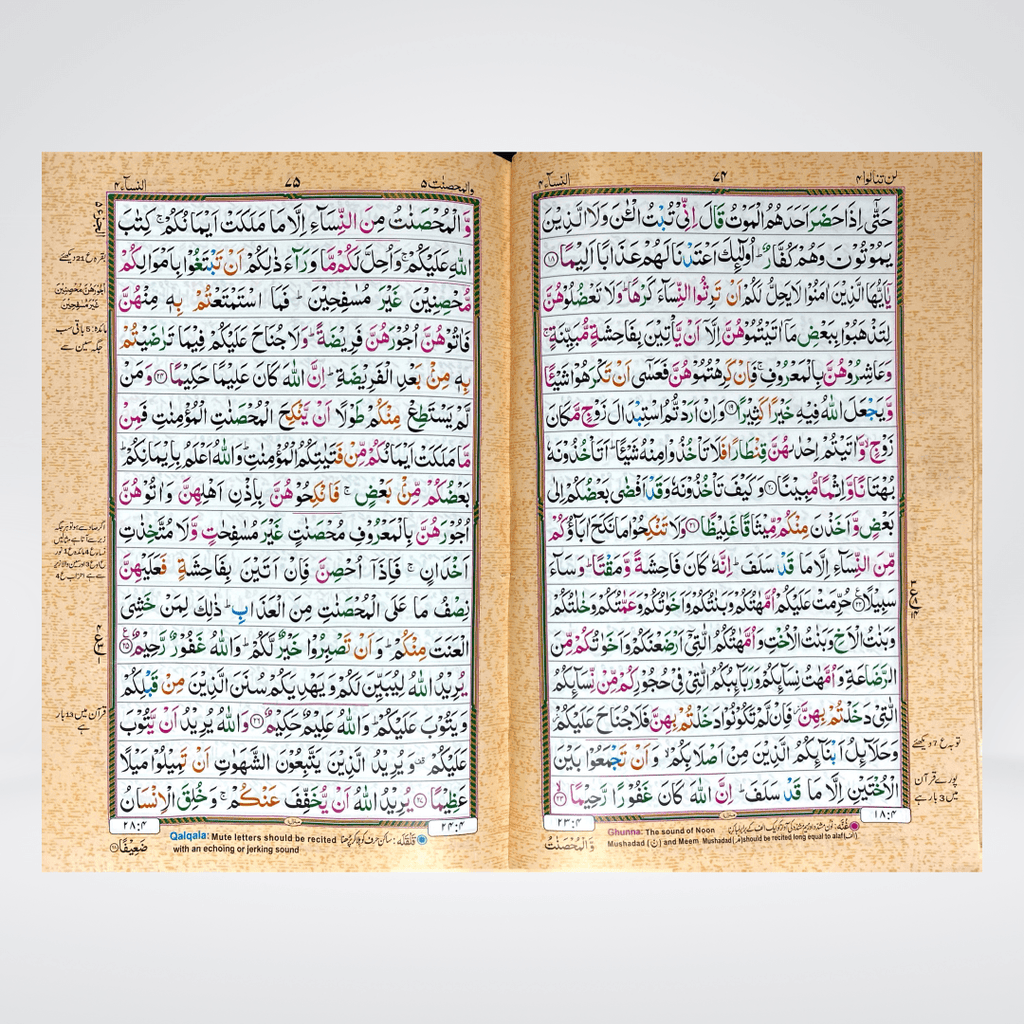 لن تنالوا ۴
۷۴
النسآء ۴
حَتّٰۤى اِذَا حَضَرَ اَحَدَهُمُ الْمَوْتُ قَالَ اِنِّیْ تُبْتُ الْـٰٔنَ وَلَا الَّذِیْنَ
یَمُوْتُوْنَ وَهُمْ كُفَّارٌ ؕ اُولٰٓىِٕكَ اَعْتَدْنَا لَهُمْ عَذَابًا اَلِیْمًا ﴿۱۸﴾
یٰۤاَیُّهَا الَّذِیْنَ اٰمَنُوْا لَا یَحِلُّ لَكُمْ اَنْ تَرِثُوا النِّسَآءَ كَرْهًا ؕ وَلَا تَعْضُلُوْهُنَّ
لِتَذْهَبُوْا بِبَعْضِ مَاۤ اٰتَیْتُمُوْهُنَّ اِلَّاۤ اَنْ یَّاْتِیْنَ بِفَاحِشَةٍ مُّبَیِّنَةٍ ۚ
وَعَاشِرُوْهُنَّ بِالْمَعْرُوْفِ ۚ فَاِنْ كَرِهْتُمُوْهُنَّ فَعَسٰۤى اَنْ تَكْرَهُوْا شَیْـًٔا
وَّیَجْعَلَ اللّٰهُ فِیْهِ خَیْرًا كَثِیْرًا ﴿۱۹﴾ وَاِنْ اَرَدْتُّمُ اسْتِبْدَالَ زَوْجٍ مَّكَانَ
زَوْجٍ ۙ وَّاٰتَیْتُمْ اِحْدٰىهُنَّ قِنْطَارًا فَلَا تَاْخُذُوْا مِنْهُ شَیْـًٔا ؕ اَتَاْخُذُوْنَهٗ
بُهْتَانًا وَّاِثْمًا مُّبِیْنًا ﴿۲۰﴾ وَكَیْفَ تَاْخُذُوْنَهٗ وَقَدْ اَفْضٰى بَعْضُكُمْ اِلٰى
بَعْضٍ وَّاَخَذْنَ مِنْكُمْ مِّیْثَاقًا غَلِیْظًا ﴿۲۱﴾ وَلَا تَنْكِحُوْا مَا نَكَحَ اٰبَآؤُكُمْ
مِّنَ النِّسَآءِ اِلَّا مَا قَدْ سَلَفَ ؕ اِنَّهٗ كَانَ فَاحِشَةً وَّمَقْتًا ؕ وَسَآءَ
سَبِیْلًا ﴿۲۲﴾ حُرِّمَتْ عَلَیْكُمْ اُمَّهٰتُكُمْ وَبَنٰتُكُمْ وَاَخَوٰتُكُمْ وَعَمّٰتُكُمْ وَخٰلٰتُكُمْ
وَبَنٰتُ الْاَخِ وَبَنٰتُ الْاُخْتِ وَاُمَّهٰتُكُمُ الّٰتِیْۤ اَرْضَعْنَكُمْ وَاَخَوٰتُكُمْ مِّنَ
الرَّضَاعَةِ وَاُمَّهٰتُ نِسَآىِٕكُمْ وَرَبَآىِٕبُكُمُ الّٰتِیْ فِیْ حُجُوْرِكُمْ مِّنْ نِّسَآىِٕكُمُ
الّٰتِیْ دَخَلْتُمْ بِهِنَّ ؗ فَاِنْ لَّمْ تَكُوْنُوْا دَخَلْتُمْ بِهِنَّ فَلَا جُنَاحَ عَلَیْكُمْ ؗ
وَحَلَآىِٕلُ اَبْنَآىِٕكُمُ الَّذِیْنَ مِنْ اَصْلَابِكُمْ ۙ وَاَنْ تَجْمَعُوْا بَیْنَ
الْاُخْتَیْنِ اِلَّا مَا قَدْ سَلَفَ ؕ اِنَّ اللّٰهَ كَانَ غَفُوْرًا رَّحِیْمًا ﴿۲۳﴾
توبہ ع 7 دیکھئے
پورے قرآن
میں 3 بار ہے
۱۸:۴
۲۳:۴
Ghunna: The sound of Noon
Mushadad (نّ) and Meem Mushadad (مّ) should be recited long equal to alaf (الف)
وَّالْمُحْصَنٰتُ
والمحصنٰت ۵
۷۵
النسآء ۴
وَّالْمُحْصَنٰتُ مِنَ النِّسَآءِ اِلَّا مَا مَلَكَتْ اَیْمَانُكُمْ ۚ كِتٰبَ
اللّٰهِ عَلَیْكُمْ ۚ وَاُحِلَّ لَكُمْ مَّا وَرَآءَ ذٰلِكُمْ اَنْ تَبْتَغُوْا بِاَمْوَالِكُمْ
مُّحْصِنِیْنَ غَیْرَ مُسٰفِحِیْنَ ؕ فَمَا اسْتَمْتَعْتُمْ بِهٖ مِنْهُنَّ
فَاٰتُوْهُنَّ اُجُوْرَهُنَّ فَرِیْضَةً ؕ وَلَا جُنَاحَ عَلَیْكُمْ فِیْمَا تَرٰضَیْتُمْ
بِهٖ مِنْۢ بَعْدِ الْفَرِیْضَةِ ؕ اِنَّ اللّٰهَ كَانَ عَلِیْمًا حَكِیْمًا ﴿۲۴﴾ وَمَنْ
لَّمْ یَسْتَطِعْ مِنْكُمْ طَوْلًا اَنْ یَّنْكِحَ الْمُحْصَنٰتِ الْمُؤْمِنٰتِ فَمِنْ
مَّا مَلَكَتْ اَیْمَانُكُمْ مِّنْ فَتَیٰتِكُمُ الْمُؤْمِنٰتِ ؕ وَاللّٰهُ اَعْلَمُ بِاِیْمَانِكُمْ ؕ
بَعْضُكُمْ مِّنْۢ بَعْضٍ ۚ فَانْكِحُوْهُنَّ بِاِذْنِ اَهْلِهِنَّ وَاٰتُوْهُنَّ
اُجُوْرَهُنَّ بِالْمَعْرُوْفِ مُحْصَنٰتٍ غَیْرَ مُسٰفِحٰتٍ وَّلَا مُتَّخِذٰتِ
اَخْدَانٍ ۚ فَاِذَاۤ اُحْصِنَّ فَاِنْ اَتَیْنَ بِفَاحِشَةٍ فَعَلَیْهِنَّ
نِصْفُ مَا عَلَى الْمُحْصَنٰتِ مِنَ الْعَذَابِ ؕ ذٰلِكَ لِمَنْ خَشِیَ
الْعَنَتَ مِنْكُمْ ؕ وَاَنْ تَصْبِرُوْا خَیْرٌ لَّكُمْ ؕ وَاللّٰهُ غَفُوْرٌ رَّحِیْمٌ ﴿۲۵﴾
یُرِیْدُ اللّٰهُ لِیُبَیِّنَ لَكُمْ وَیَهْدِیَكُمْ سُنَنَ الَّذِیْنَ مِنْ قَبْلِكُمْ
وَیَتُوْبَ عَلَیْكُمْ ؕ وَاللّٰهُ عَلِیْمٌ حَكِیْمٌ ﴿۲۶﴾ وَاللّٰهُ یُرِیْدُ اَنْ یَّتُوْبَ
عَلَیْكُمْ ۫ وَیُرِیْدُ الَّذِیْنَ یَتَّبِعُوْنَ الشَّهَوٰتِ اَنْ تَمِیْلُوْا مَیْلًا
عَظِیْمًا ﴿۲۷﴾ یُرِیْدُ اللّٰهُ اَنْ یُّخَفِّفَ عَنْكُمْ ۚ وَخُلِقَ الْاِنْسَانُ
بقرہ ع 21 دیکھئے
مائدہ: 5 باقی سب
جگہ سین سے
قرآن میں 13 بار
ہے
۲۴:۴
۲۸:۴
Qalqala: Mute letters should be recited
with an echoing or jerking sound
ضَعِیْفًا ﴿۲۸﴾